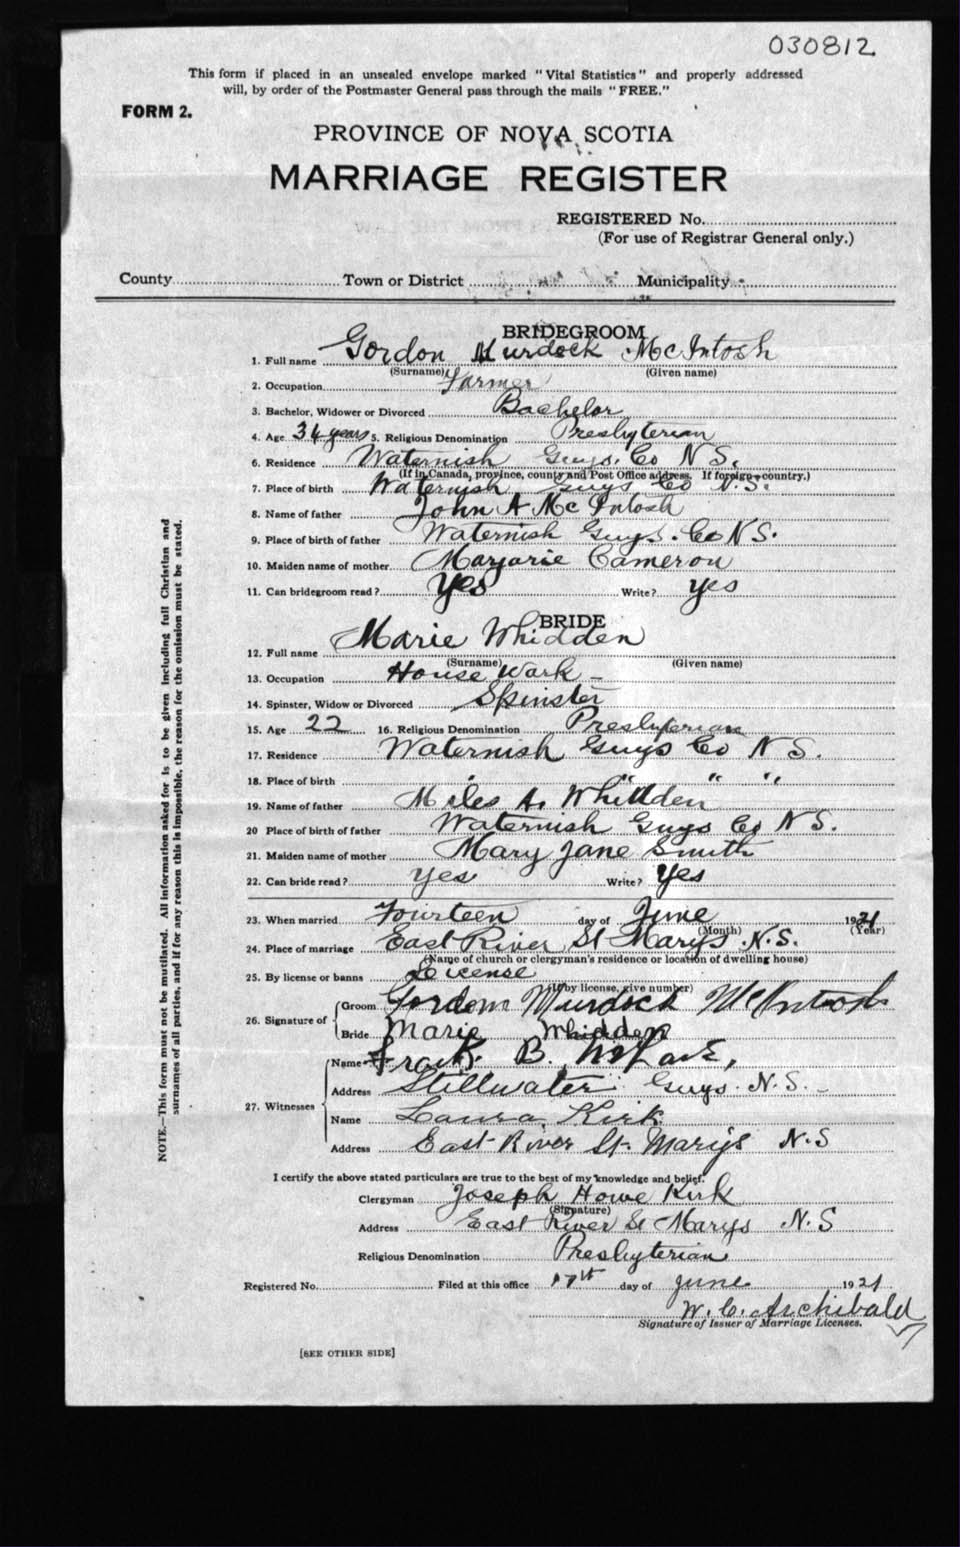 030812
This form if placed in an unsealed envelope marked "Vital Statistics" and properly addressed
will, by order of the Postmaster General pass through the mails "FREE."
FORM 2.
PROVINCE OF NOVA SCOTIA
MARRIAGE REGISTER
REGISTERED No.
(For use of Registrar General only.)
County Town or District Municipality
BRIDEGROOM
1. Full name Gordon Murdock McIntosh
(Surname) (Given name)
2. Occupation Farmer
3. Bachelor, Widower or Divorced Bachelor
4. Age 34 years 5. Religious Denomination Presbyterian
6. Residence Waternish Guys. Co N S.
(If in Canada, province, county and Post Office address. If foreign country.)
7. Place of birth Waternish Guys Co N.S.
8. Name of father John A McIntosh
9. Place of birth of father Waternish Guys. Co N S.
10. Maiden name of mother Marjorie Cameron
11. Can bridegroom read? Yes Write? yes
BRIDE
12. Full name Marie Whidden
(Surname) (Given name)
13. Occupation House Work -
14. Spinster, Widow or Divorced Spinster
15. Age 22 16. Religious Denomination Presbyterian
17. Residence Waternish Guys Co N S.
18. Place of birth " " " "
19. Name of father Miles A. Whidden
20 Place of birth of father Waternish Guys Co N S.
21. Maiden name of mother Mary Jane Smith
22. Can bride read? yes Write? Yes
23. When married Fourteen day of June 1921
(Month) (Year)
24. Place of marriage East River St Marys N.S.
(Name of church or clergyman's residence or location of dwelling house)
25. By license or banns License
(If by license, give number)
26. Signature of Groom Gordon Murdock McIntosh
Bride Marie Whidden
27. Witnesses Name Frank B.
Address Stillwater Guys. N.S.
Name Laura Kirk
Address East River St. Mary's N.S
I certify the above stated particulars are true to the best of my knowledge and belief.
Clergyman Joseph Howe Kirk
(Signature)
Address East River St Marys N.S
Religious Denomination Presbyterian
Registered No. Filed at this office 17th day of June 1921
W. C. Archibald
Signature of Issuer of Marriage Licenses.
[SEE OTHER SIDE]
NOTE.—This form must not be mutilated. All information asked for is to be given including full Christian and
surnames of all parties, and if for any reason this is impossible, the reason for the omission must be stated.